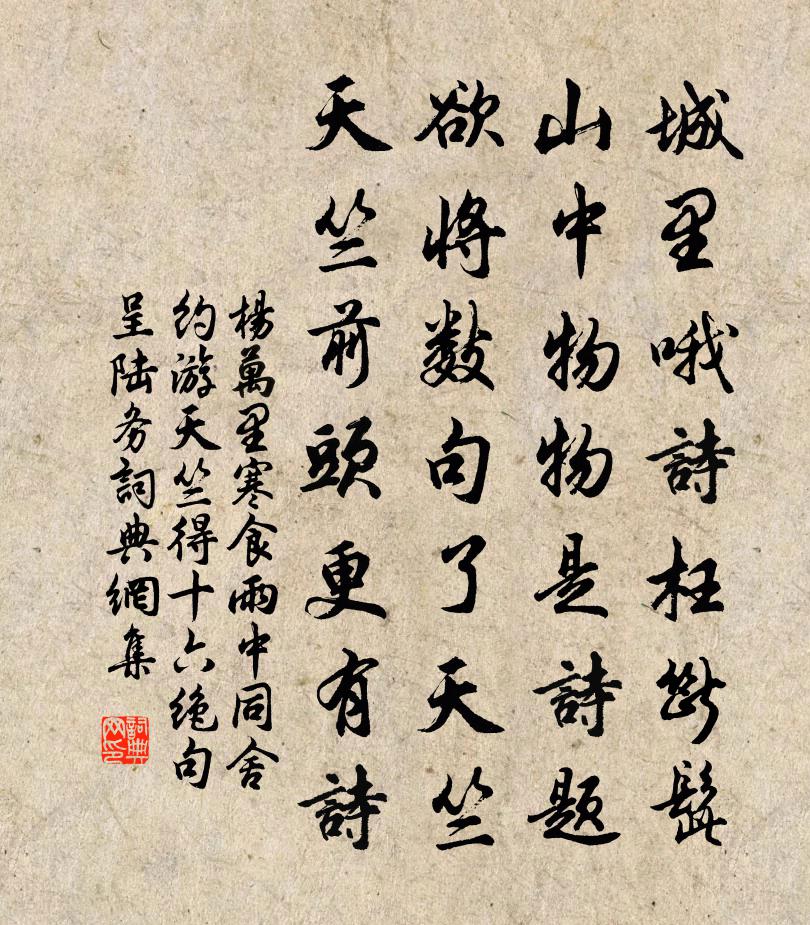 城里哦詩枉斷髭
山中物物是詩題
欲將數句了天竺
天竺前頭更有詩
楊萬里寒食雨中同舍
約游天竺得十六絕句
呈陆务詞典網集
詞典
网印